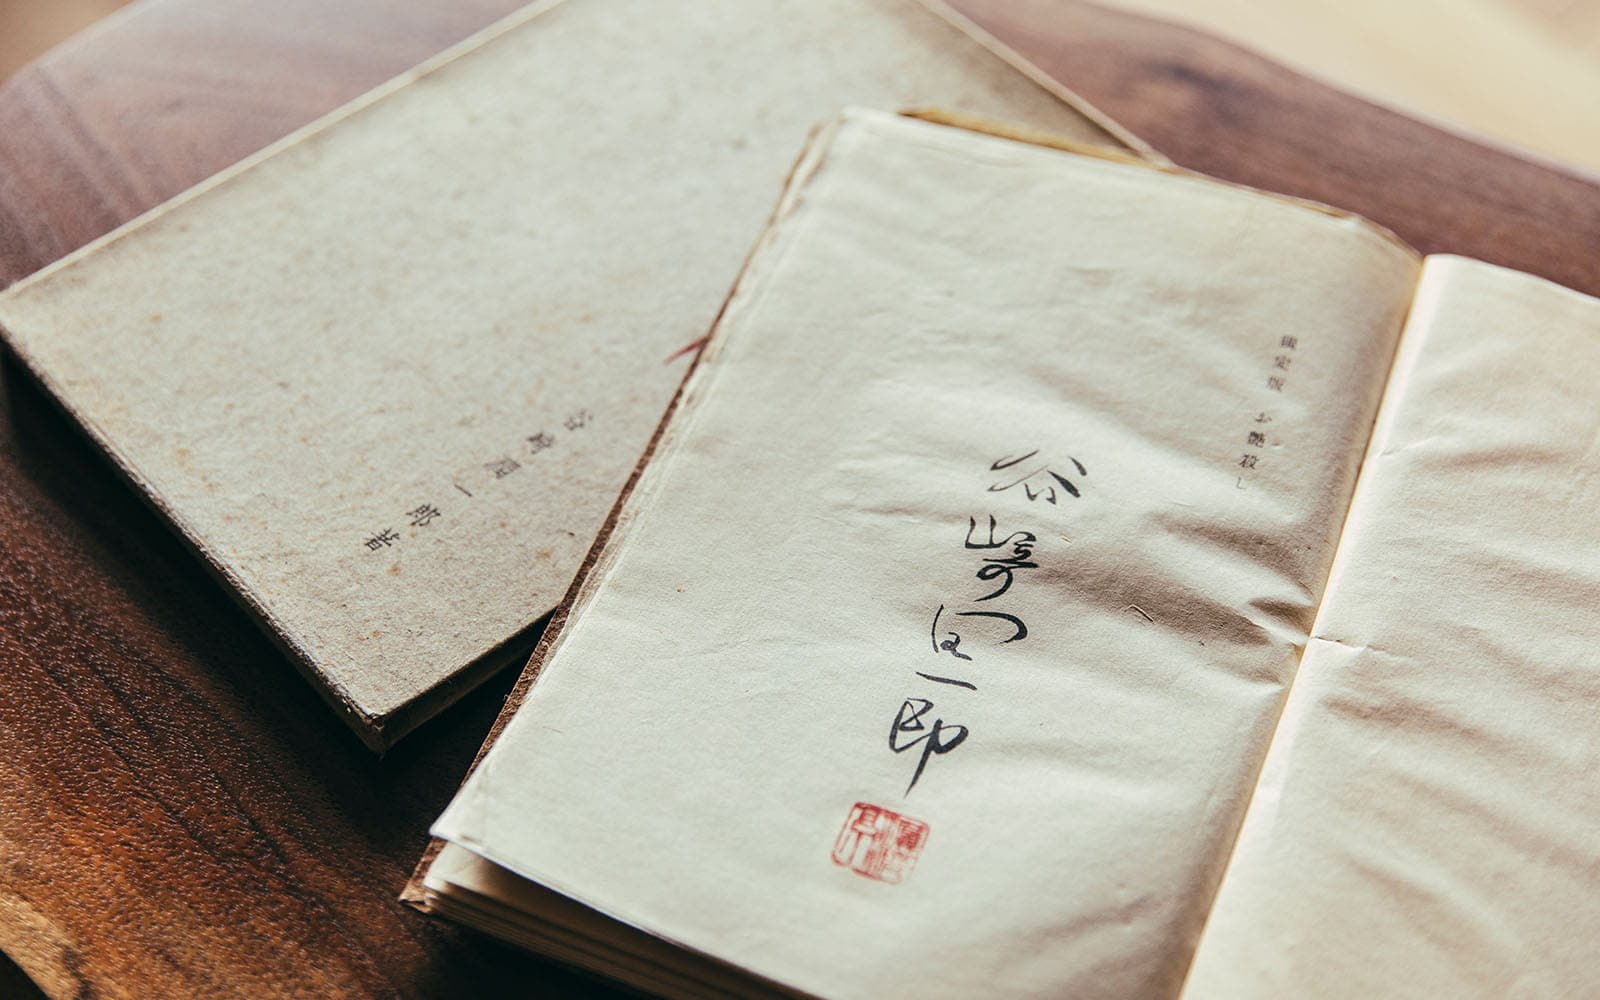 限定版 お艶殺し
谷崎潤一郎
谷崎潤一郎著